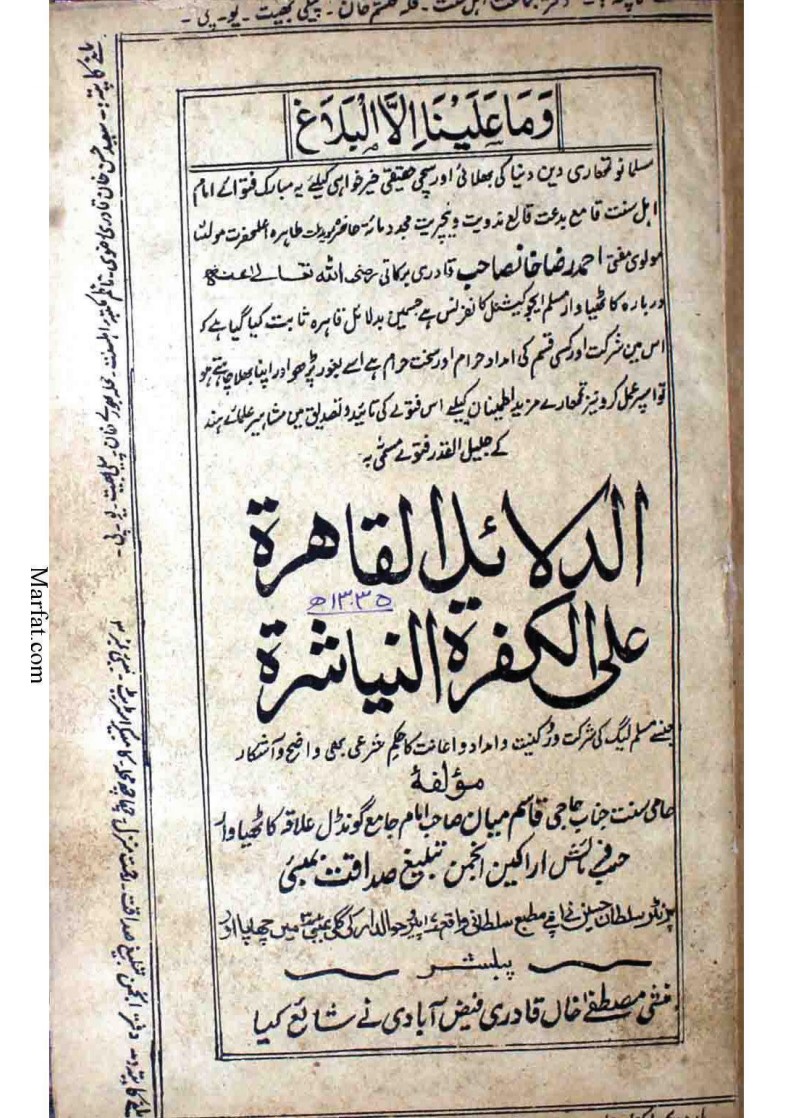 وَمَا عَلَيْنَا اِلَّا الْبَلَاغ
مسلمانو تمھاری دین دنیا کی بھلائی اور سچی حقیقی خیر خواہی کیلئے یہ مبارک فتوائے امام
اہل سنت قامع بدعت قالع ندویت و نیچریت مجدد مائۃ حاضرہ مؤید ملت طاہرہ اعلیحضرت مولٰنا
مولوی مفتی احمد رضا خانصاحب قادری برکاتی رضی اللہ تعالیٰ عنہ
دربارہ کاٹھیاوار مسلم ایجوکیشنل کانفرنس ہے جسمیں بدلائل قاہرہ ثابت کیا گیا ہے کہ
اس میں شرکت اور کسی قسم کی امداد حرام اور سخت حرام ہے اسے بغور پڑھو اور اپنا بھلا چاہتے ہو
تو اسپر عمل کرو نیز تمھارے مزید اطمینان کیلئے اس فتوے کی تائید و تصدیق میں مشاہیر علمائے ہند
کے جلیل القدر فتوے مسمّٰی بہ
الدلائل القاھرۃ
۱۳۳۵ھ
علی الکفرۃ النیاشرۃ
جسنے مسلم لیگ کی شرکت و رکنیت و امداد و اعانت کا حکم شرعی بھی واضح و آشکار
مؤلفۂ
حامی سنت جناب حاجی قاسم میاں صاحب امام جامع گونڈل علاقہ کاٹھیاوار
حسب فرمائش اراکین انجمن تبلیغ صداقت بمبئی
پرنٹر سلطان حسین نے اپنے مطبع سلطانی واقع حوالدار کی گلی بمبئی میں چھاپا اور
پبلشر
منشی مصطفےٰ خاں قادری فیض آبادی نے شائع کیا
ملنے کا پتہ :- سعید حسن خان قادری رضوی ناظم مکتبہ اہلسنت محلہ بھورے خان پیلی بھیت - یو - پی -
ملنے کا پتہ دفتر انجمن تبلیغ صداقت
Marfat.com